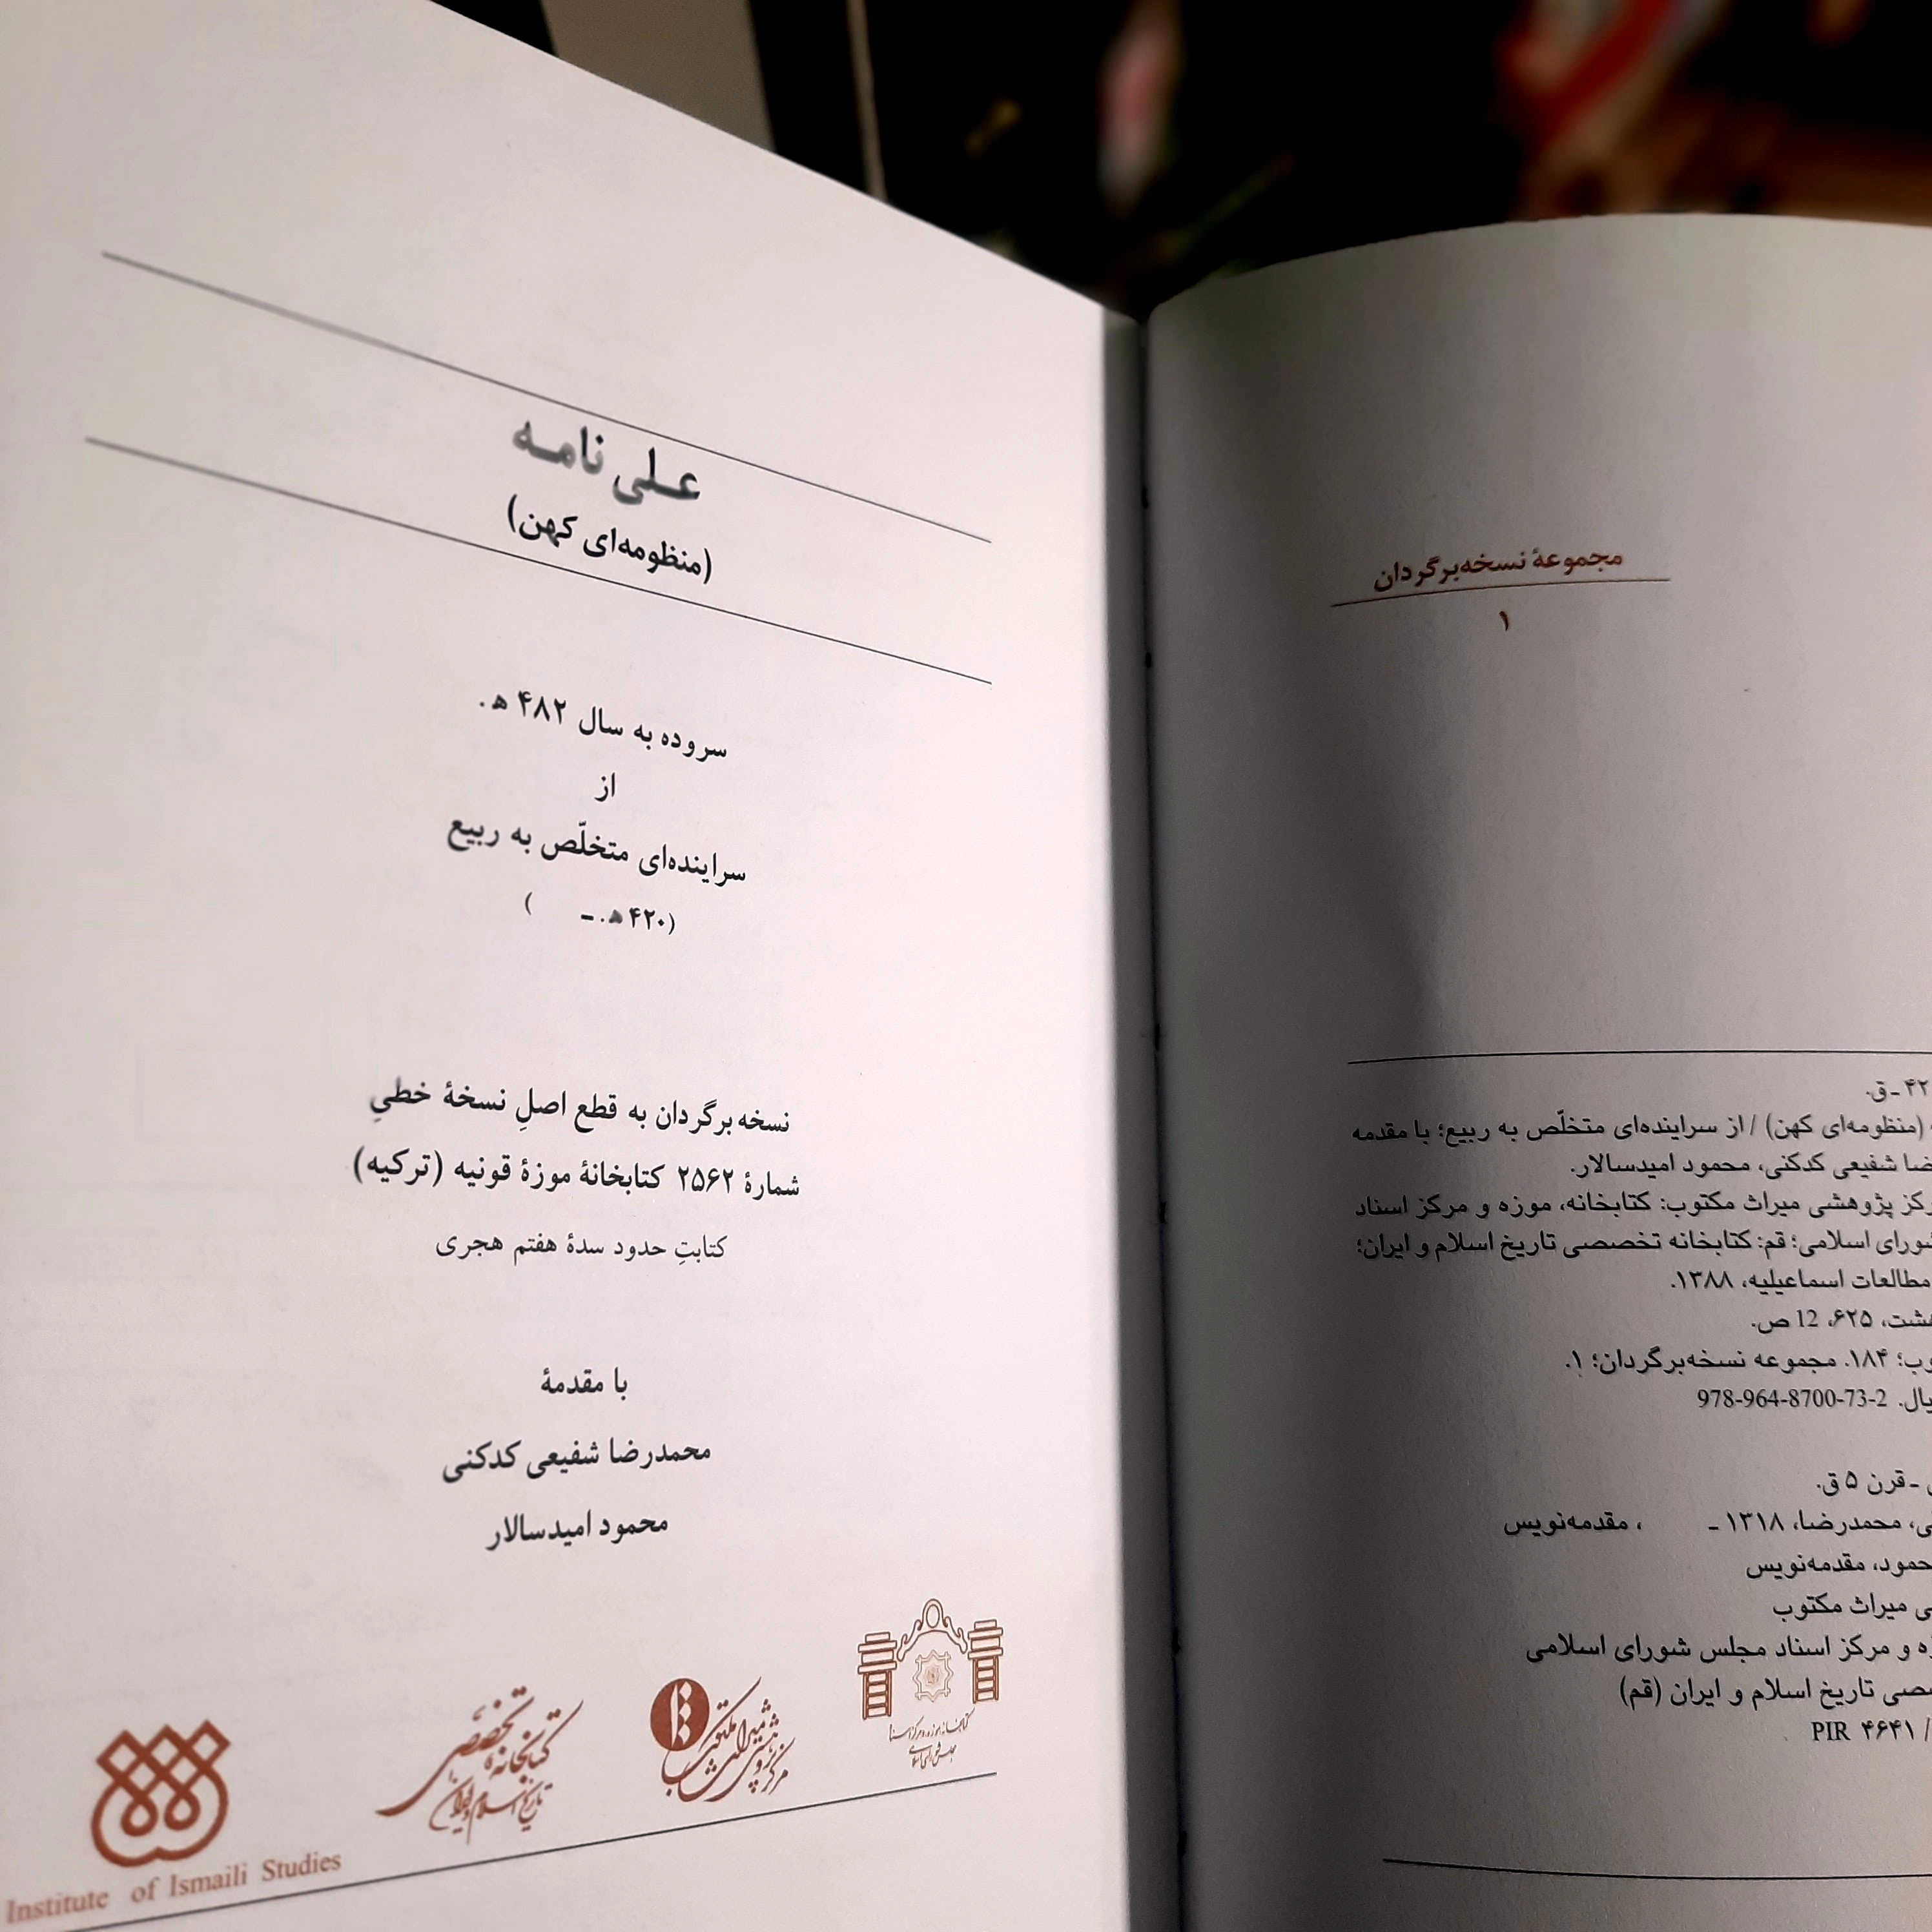 علی نامه
(منظومه‌ای کهن)
سروده به سال ۴۸۲ ه‍.
از
سراینده‌ای متخلّص به ربیع
(۴۲۰ ه‍. ـ )
نسخه برگردان به قطع اصلِ نسخهٔ خطیِ
شمارهٔ ۲۵۶۲ کتابخانهٔ موزهٔ قونیه (ترکیه)
کتابتِ حدود سدهٔ هفتم هجری
با مقدمهٔ
محمدرضا شفیعی کدکنی
محمود امیدسالار
کتابخانه، موزه و مرکز اسناد
مجلس شورای اسلامی
مرکز پژوهشی میراث مکتوب
کتابخانهٔ تخصصی
تاریخ اسلام و ایران
Institute of Ismaili Studies
مجموعهٔ نسخه‌برگردان
۱
ـ ق.
(منظومه‌ای کهن) / از سراینده‌ای متخلّص به ربیع؛ با مقدمه
شفیعی کدکنی، محمود امیدسالار.
پژوهشی میراث مکتوب: کتابخانه، موزه و مرکز اسناد
اسلامی؛ قم: کتابخانه تخصصی تاریخ اسلام و ایران؛
مطالعات اسماعیلیه، ۱۳۸۸.
۶۲۵، 12 ص.
۱۸۴. مجموعه نسخه‌برگردان؛ ۱.
978-964-8700-73-2
ـ قرن ۵ ق.
محمدرضا، ۱۳۱۸ ـ ، مقدمه‌نویس
مقدمه‌نویس
میراث مکتوب
و مرکز اسناد مجلس شورای اسلامی
تاریخ اسلام و ایران (قم)
PIR ۴۶۴۱ /